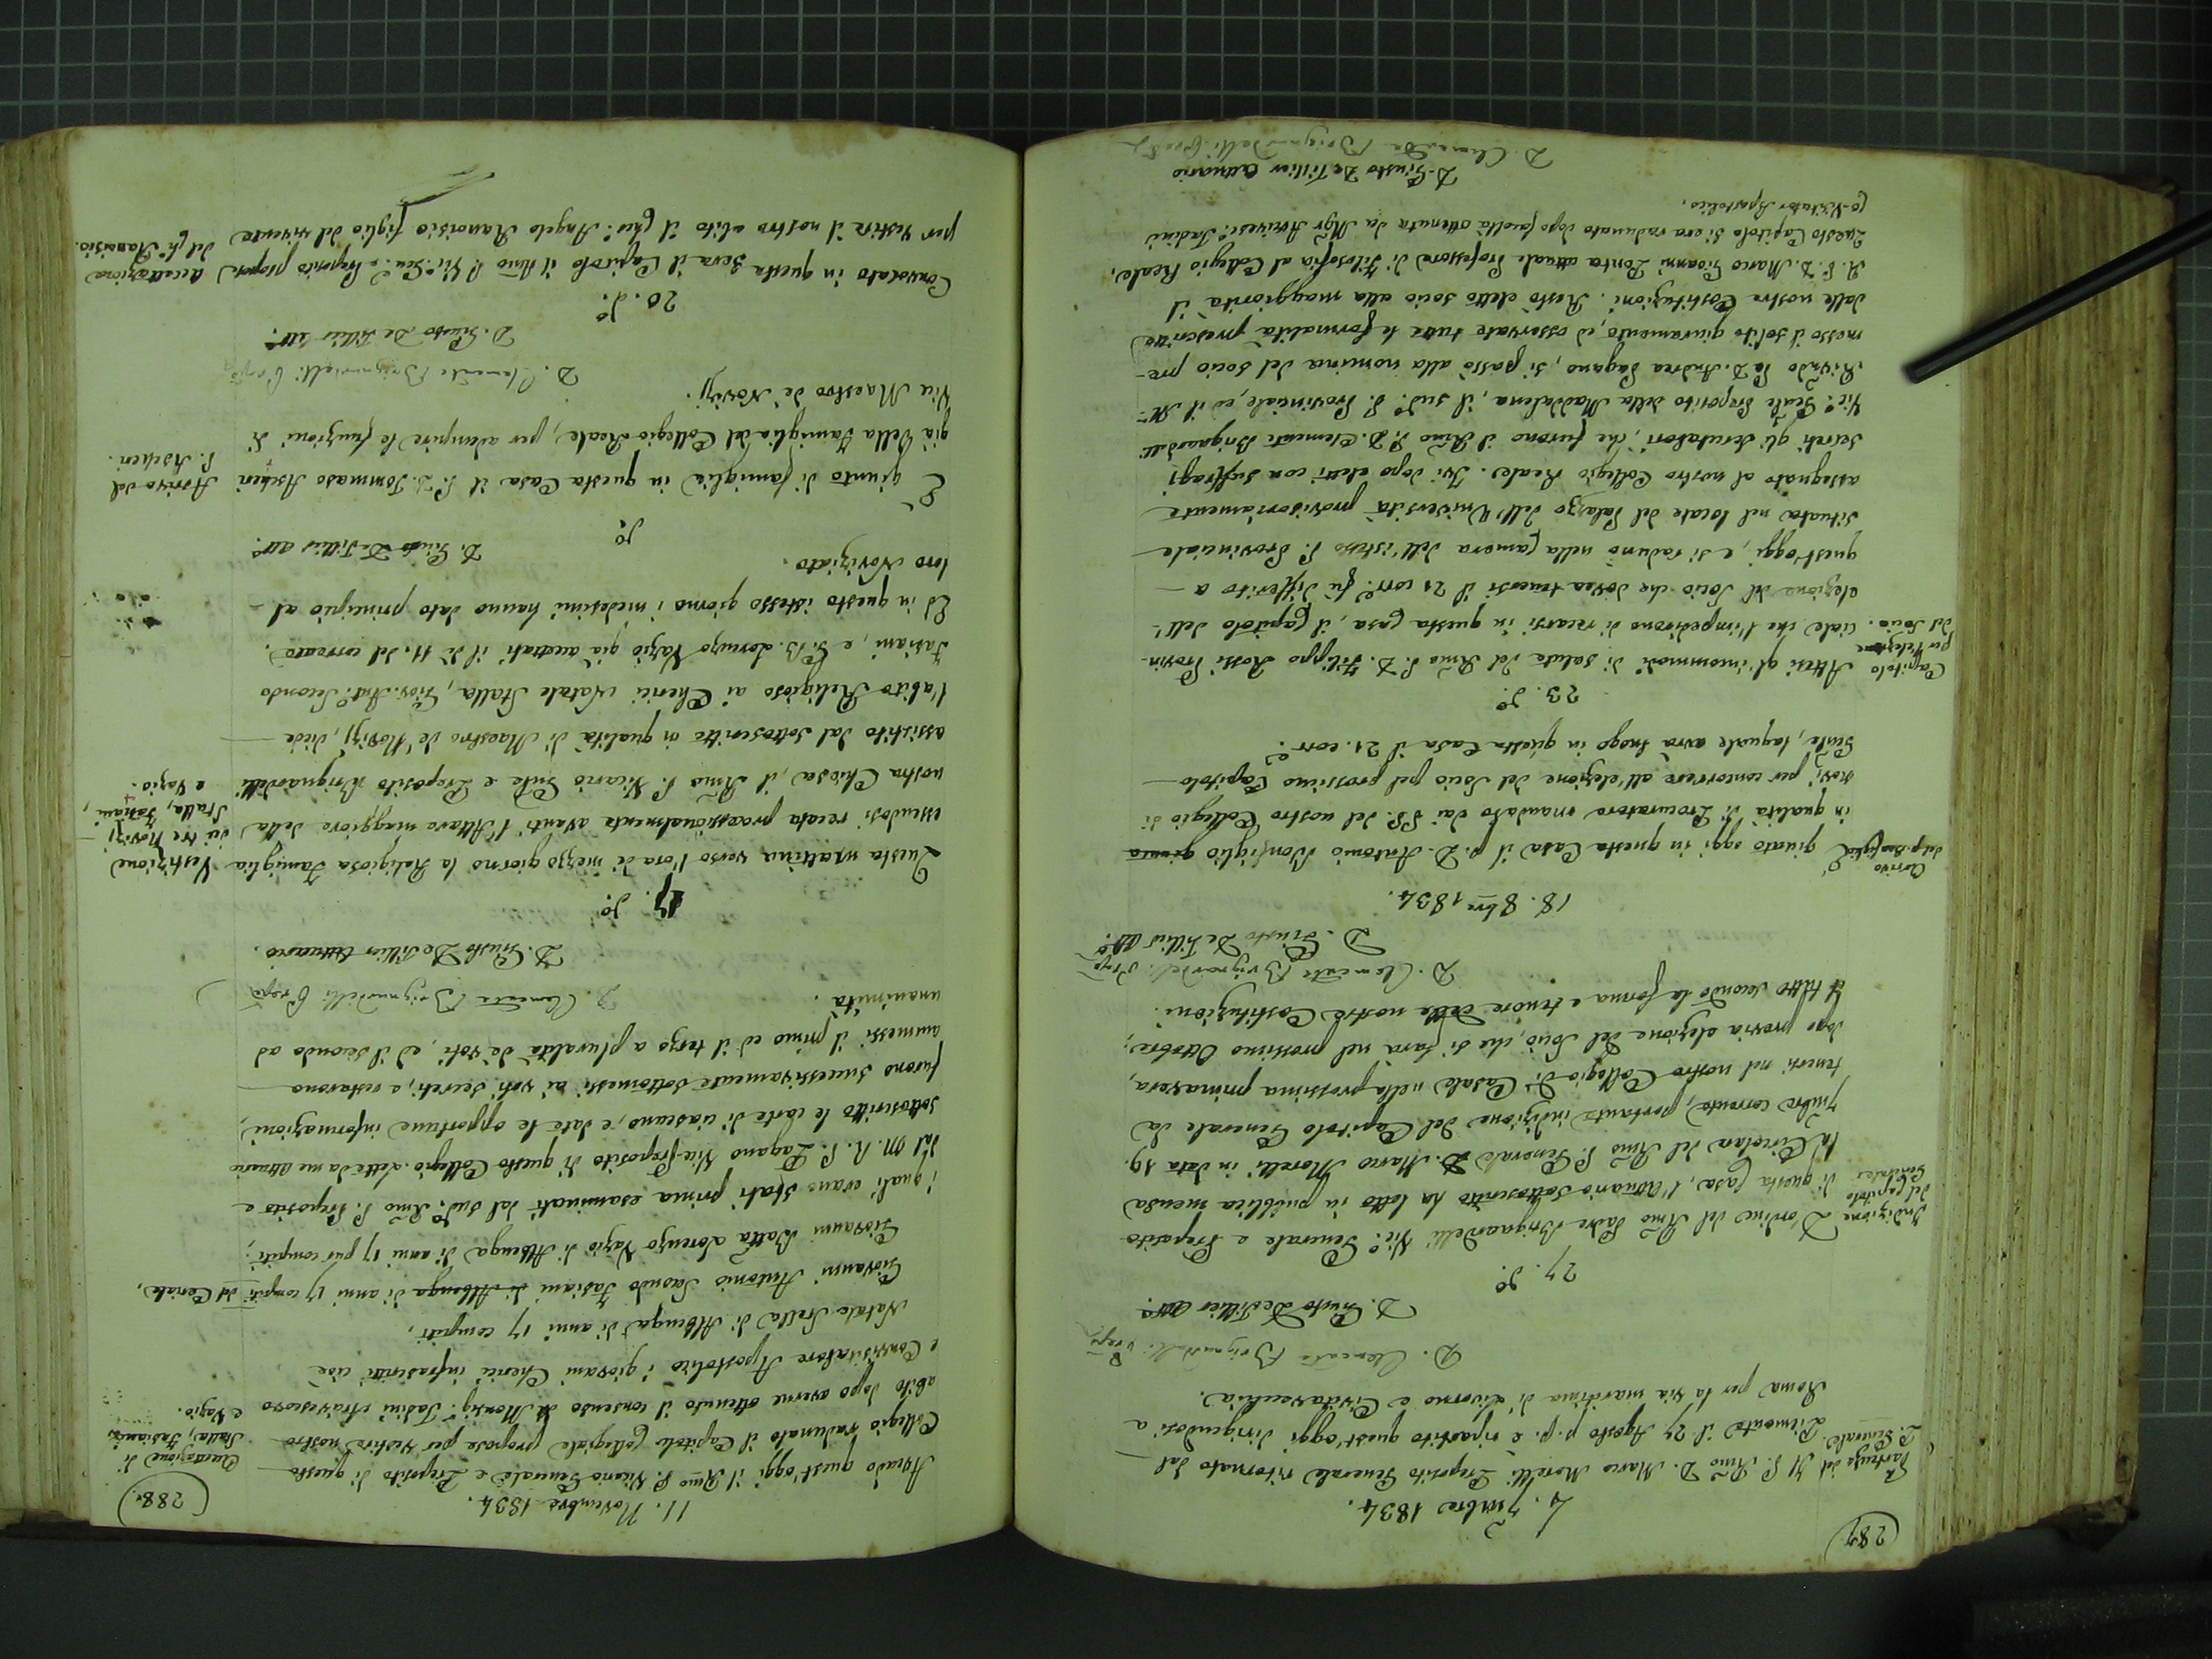 (287)
4. 7mbre 1834.
Partenza del P. Generale.
Il P. Rmo D. Marco Morelli Preposito Generale ritornato dal
Piemonte il 27 Agosto p.p. è ripartito quest'oggi dirigendosi a
Roma per la via marittima di Livorno e Civitavecchia.
D. Clemente Brignardelli Prepo
D. Giusto De Filliis Atto.
27. do.
Indizione del capitolo Generale
D'ordine del Rmo Padre Brignardelli Vic.o Generale e Preposito
di questa Casa, l'Attuario sottoscritto ha letto in pubblica mensa
la Circolare del Rmo P. Generale D. Marco Morelli in data 19.
7mbre corrente, portante indizione del Capitolo Generale da
tenersi nel nostro Collegio di Casale nella prossima primavera,
dopo previa elezione del Socio, che si farà nel prossimo Ottobre,
il tutto secondo la forma e tenore delle nostre Costituzioni.
D. Clemente Brignardelli Prepo
D. Giusto De Filliis Atto.
18. 8bre 1834.
Arrivo del p. Bonfiglio
È giunto oggi in questa Casa il P. D. Antonio Bonfiglio giunto
in qualità di Procuratore mandato dai PP. del nostro Collegio di
Novi per concorrere all'elezione del Socio pel prossimo Capitolo
Gnle, laquale avrà luogo in questa Casa il 21. corr.e
23. do.
Capitolo per l'elezione del Socio.
Attesi gl'incommodi di salute del Rmo P. D. Filippo Rossi Provin-
ciale che l'impedirono di recarsi in questa Casa, il Capitolo dell'
elezione del Socio che dovea tenersi il 21 corr.e fu differito a
quest'oggi, e si radunò nella Camera dell'istesso P. Provinciale
situata nel locale del Palazzo dell'Università provvisoriamente
assegnato al nostro Collegio Reale. Ivi dopo eletti con suffragi
secreti gli scrutatori, che furono il Rmo P. D. Clemente Brignardelli
Vic.o Gnle Preposito della Maddalena, il sud.o P. Provinciale, ed il M.
Rivndo P. D. Andrea Pagano, si passò alla nomina del socio pre-
messo il solito giuramento, ed osservate tutte le formalità prescritte
dalle nostre Costituzioni. Restò eletto socio alla maggiorità il
R. P. D. Marco Giovanni Ponta attuale Professore di Filosofia al Collegio Reale.
Questo Capitolo si era radunato dopo facoltà ottenuta da Mgr Arcivesc.o Tadini
Co-Visitator Apostolico.
D. Giusto De Filliis Attuario
D. Clemente Brignardelli Prepo
(288.)
11. Novembre 1834.
Accettazione di Stalla, Fabiani e Vazio.
Avendo quest'oggi il Rmo P. Vicario Generale e Preposito di questo
Collegio radunato il Capitolo Collegiale propose per vestire nostro
abito dopo averne ottenuto il consenso di Monsig.r Tadini Arcivescovo
e Convisitatore Apostolico i giovani Chierici infrascritti cioè
Natale Stella di Albenga di anni 17 compiti,
Giovanni Antonio Secondo Fabiani di Albenga di anni 17 compiti del Ceriale,
Giovanni Batta Lorenzo Vazio di Albenga di anni 17 pur compiti;
i quali erano stati prima esaminati dal sud.o Rmo P. Preposito e
dal M. R. P. Pagano Vice-Preposito di questo Collegio. Lette da me Attuario
sottoscritto le carte di ciascuno, e date le opportune informazioni,
furono successivamente sottomessi ai voti secreti, e restarono
ammessi il primo ed il terzo a pluralità de' voti, ed il secondo ad
unanimità.
D. Clemente Brignardelli Prepo
D. Giusto De Filliis Attuario.
17. do.
Vestizione di tre Novizj Stalla, Fabiani, e Vazio.
Questa mattina verso l'ora di mezzo giorno la Religiosa Famiglia
essendosi recata processionalmente avanti l'Altare maggiore della
nostra Chiesa, il Rmo P. Vicario Gnle e Preposito Brignardelli
assistito dal sottoscritto in qualità di Maestro de' Novizj, diede
l'abito Religioso ai Chierici Natale Stalla, Giov. Ant.o Secondo
Fabiani, e G. B. Lorenzo Vazio già accettati il dì 11. del corrente.
Ed in questo istesso giorno i medesimi hanno dato principio al
loro Noviziato.
D. Giusto De Filliis Atto.
do.
Arrivo del P. Ascheri.
È giunto di famiglia in questa Casa il P. D. Tommaso Ascheri
già della Famiglia del Collegio Reale, per adempire le funzioni di
Vice Maestro de' Novizj.
D. Clemente Brignardelli Prepo
D. Giusto De Filliis Atto.
20. do.
Accettazione del Ch. Ravoisio.
Convocato in questa sera il Capitolo il Rmo P. Vic.o Gen.e e Preposito propose
per vestire il nostro abito il Chco Angelo Ravoisio figlio del vivente